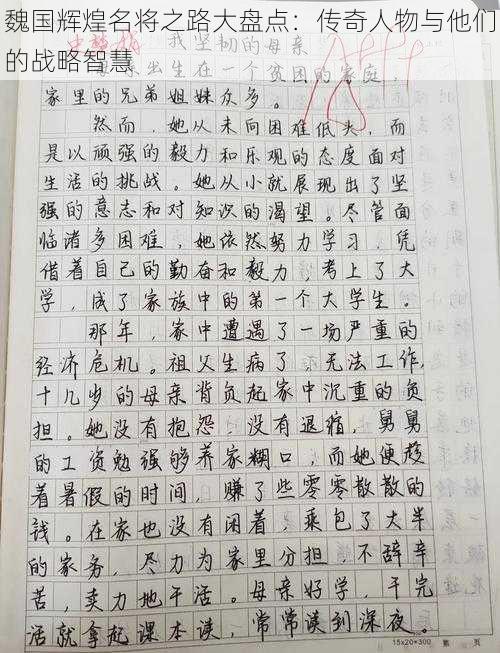 魏国辉煌名将之路大盘点：传奇人物与他们的战略智慧
我坚韧的母亲
母亲出生在一个贫困的家庭，
家里的兄弟姐妹众多。
然而，她从未向困难低头，而
是以顽强的毅力和乐观的态度面对
生活的挑战。她从小就展现出了坚
强的意志和对知识的渴望。尽管面
临诸多困难，她依然努力学习，凭
借着自己的勤奋和毅力，考上了大
学，成了家族中的第一个大学生。
那年，家中遭遇了一场严重的
经济危机。祖父生病了，无法工作，
十几岁的母亲背负起家中沉重的负
担。她没有抱怨，没有退缩，舅舅
的工资勉强够养家糊口，而她便趁
着暑假的时间，赚了些零零散散的
钱。在家也没有闲着，乘包了大半
的家务，尽力为家里分担，不辞辛
苦，卖力地干活。母亲好学，干完
活就拿起课本读，常常读到深夜。
15x20=300